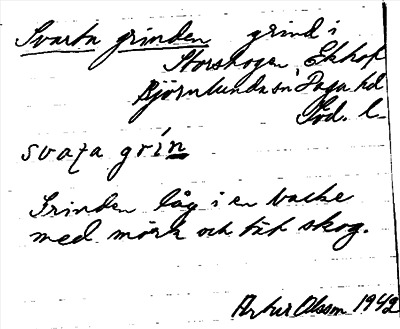 Svarta grinden grind i
Storskogen, Ekhof
Björnlunda sn, Daga hd
Söd. l.
svaṭa grín
Grinden låg i en backe
med mörk och tät skog.
Artur Olsson 1942